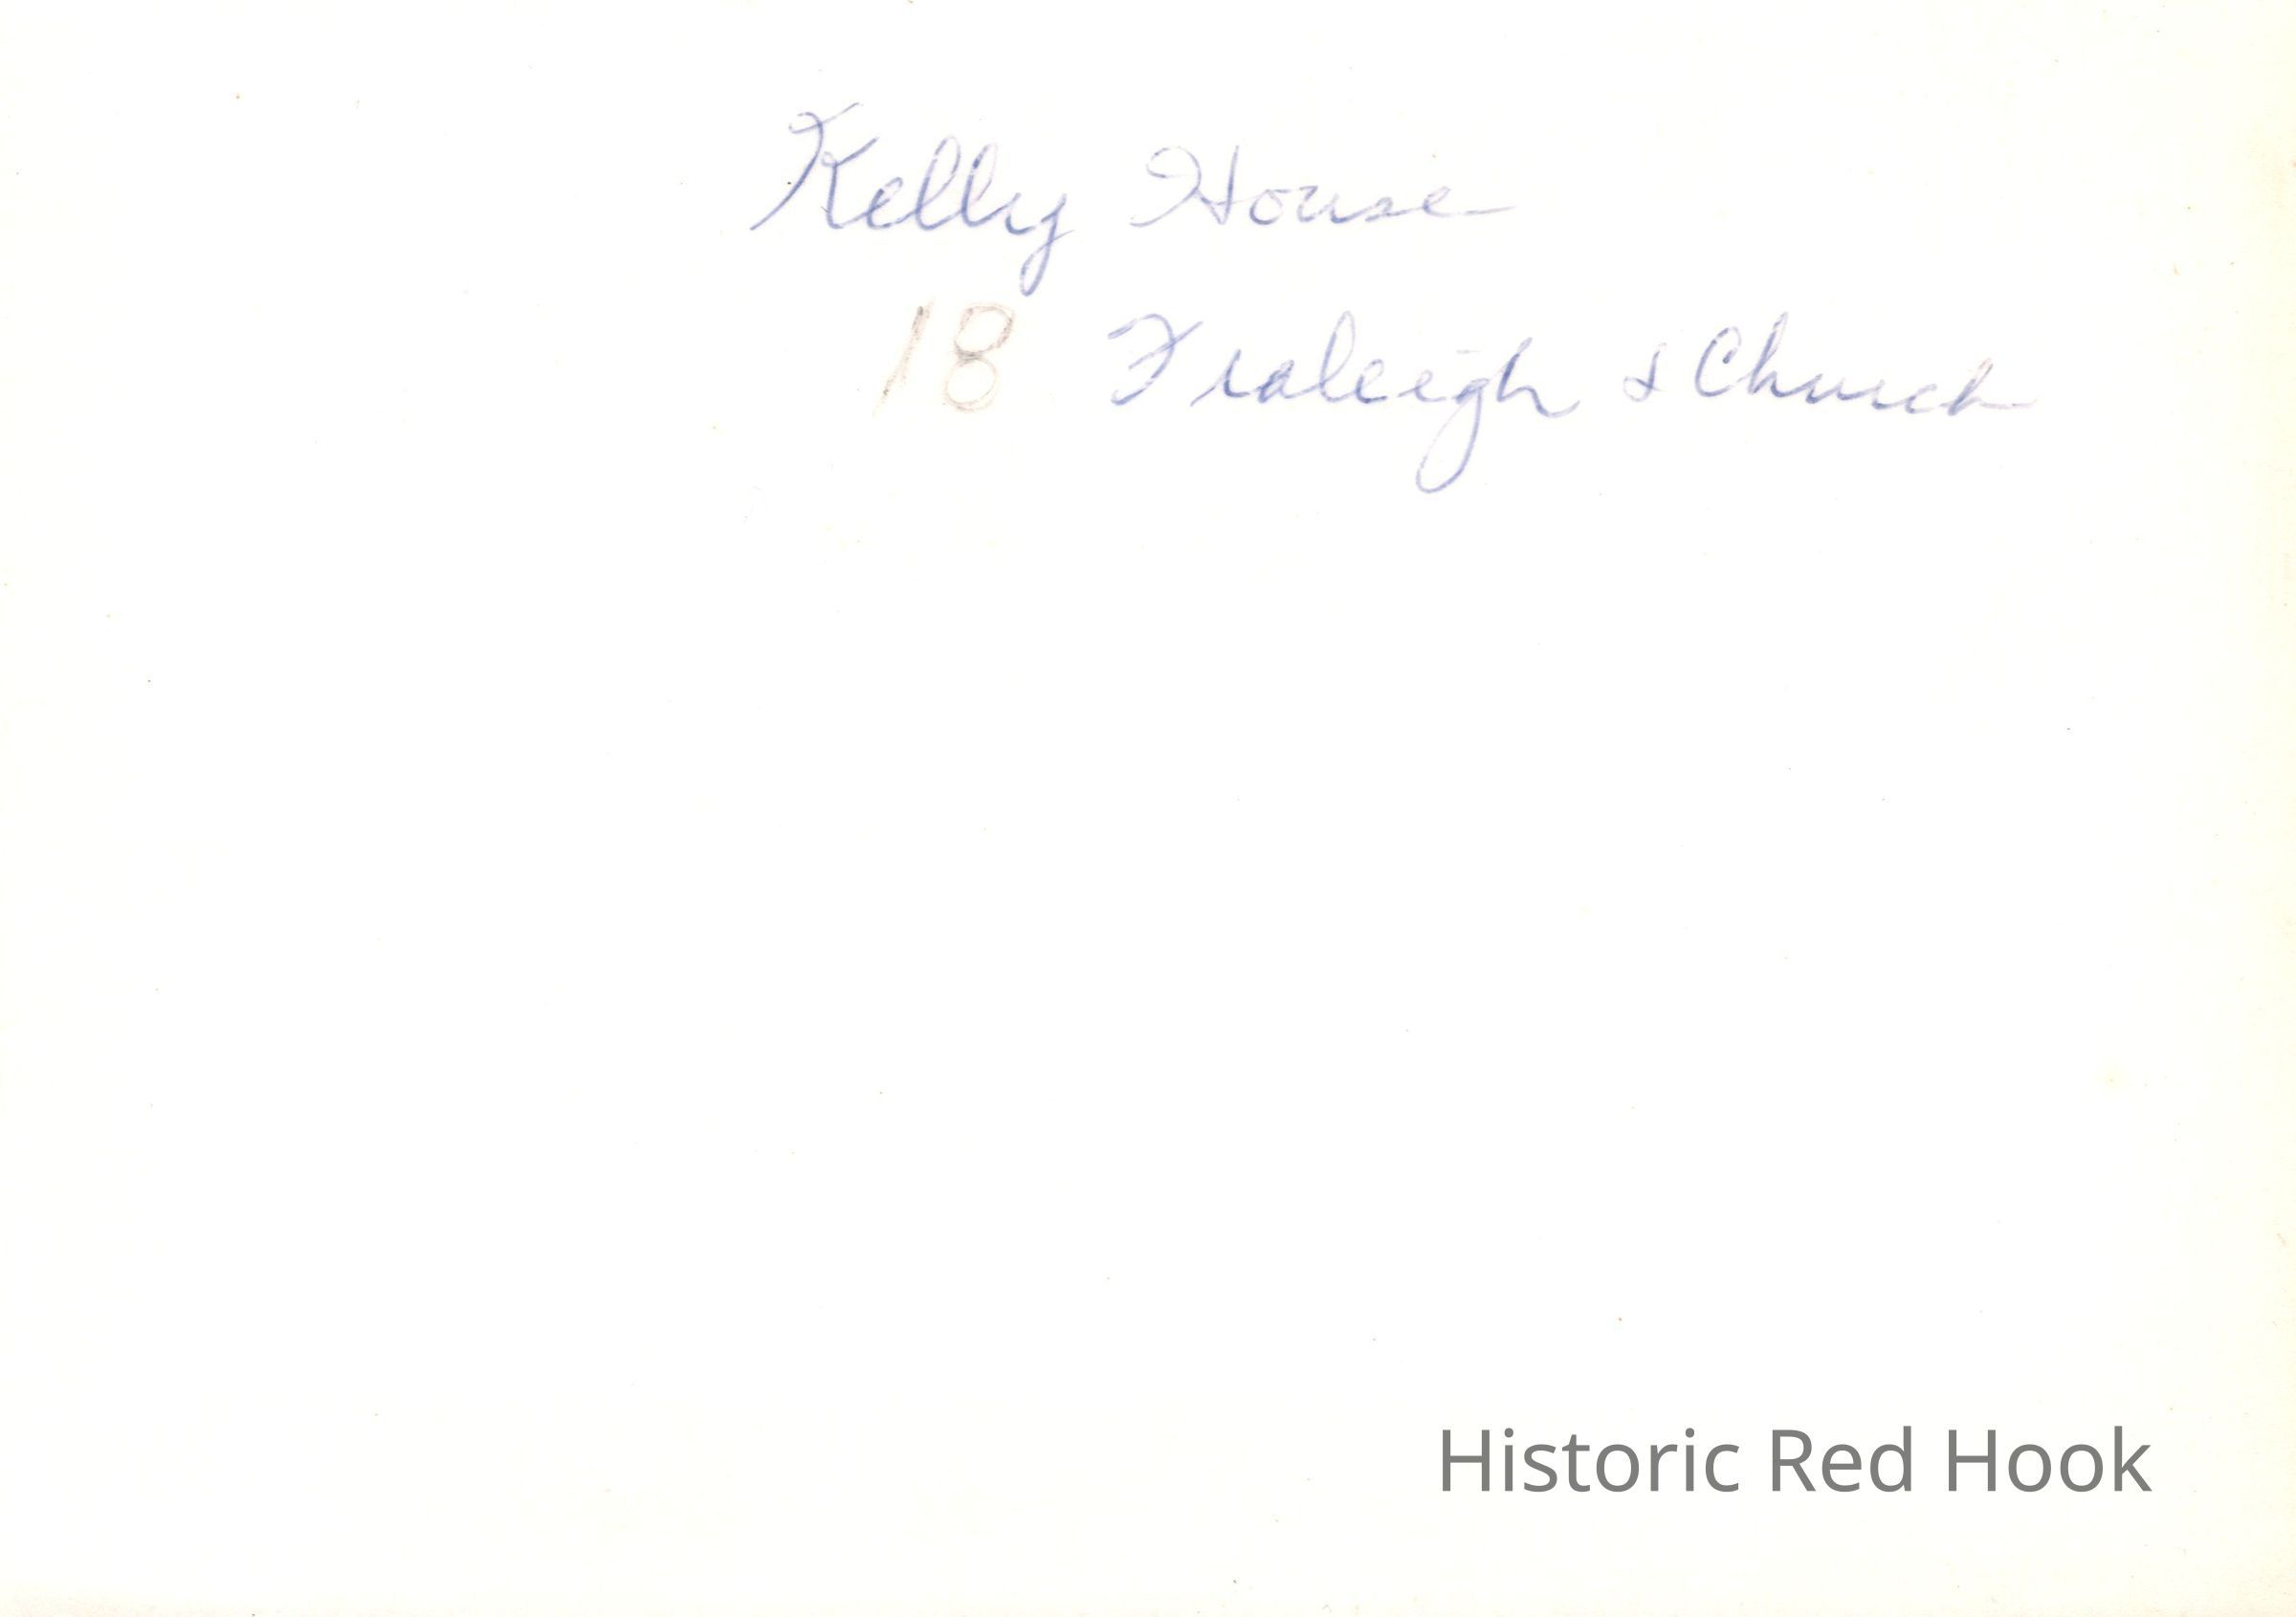 Kelly House
18 Fraleigh & Church
Historic Red Hook